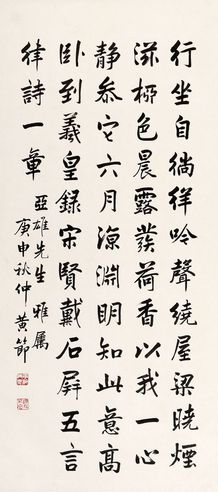 行坐自徜徉吟聲繞屋梁曉煙
滋柳色晨露發荷香以我一心
靜忝它六月涼淵明知此意高
卧到羲皇錄宋賢戴石屏五言
律詩一章
亞雄先生雅屬
庚申秋仲黃節